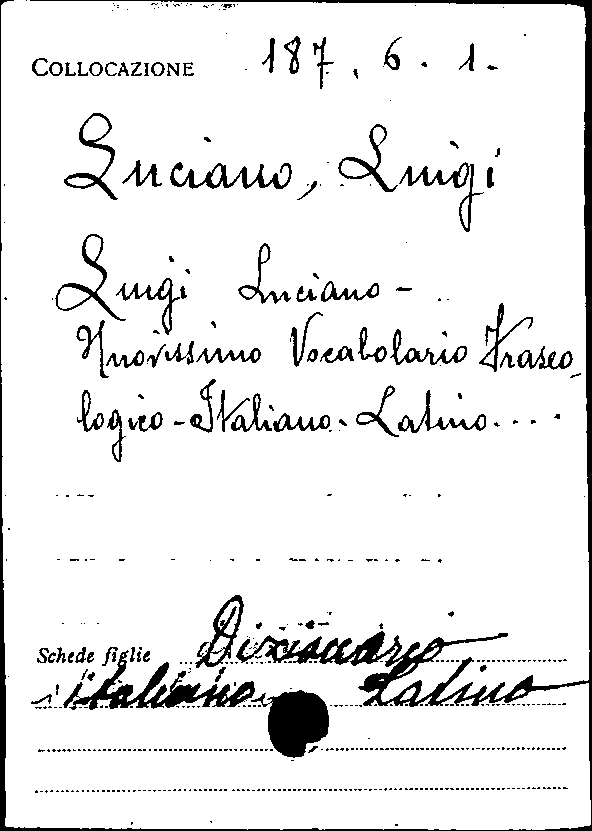 COLLOCAZIONE 187. 6. 1.
Luciano, Luigi
Luigi Luciano -
Nuovissimo Vocabolario Fraseo
logico - Italiano - Latino....
Schede figlie Dizionario
Italiano Latino